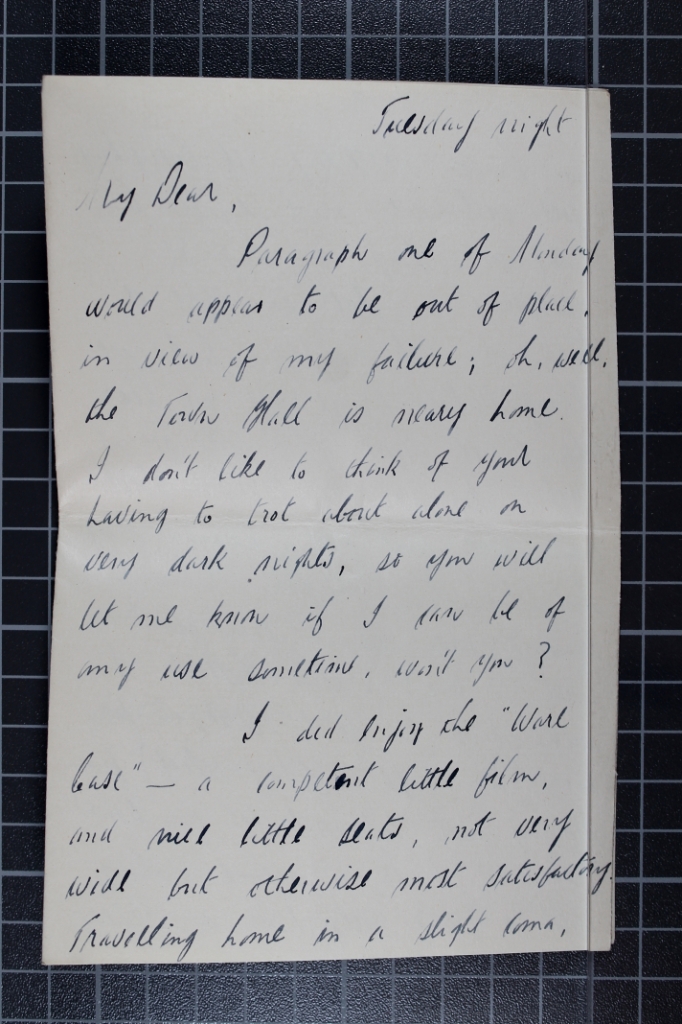 Tuesday night
My Dear,
Paragraph one of Monday
would appear to be out of place,
in view of my failure; oh, well,
the Town Hall is neary home.
I don't like to think of your
having to trot about alone on
very dark nights, so you will
let me know if I can be of
any use sometime, won't you?
I did enjoy the "Ware
Case" — a competent little film,
and nice little seats, not very
wide but otherwise most satisfactory.
Travelling home in a slight coma,